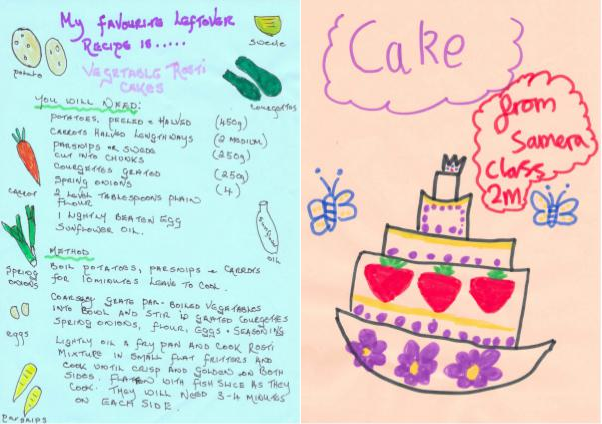 My favourite Leftover
Recipe is.....
Vegetable Rosti
Cakes
potato
swede
courgettes
You will need:
Potatoes, peeled & halved (450g)
Carrots halved lengthways (2 medium)
Parsnips or swede
cut into chunks (250g)
Courgettes grated (250g)
Spring onions (4)
2 level tablespoons plain
flour
1 lightly beaten egg
Sunflower oil.
carrot
Sunflower
oil
Spring
onions
Method
Boil potatoes, parsnips & carrots
for 10 minutes leave to cool.
Coarsely grate par-boiled vegetables
into bowl and stir in grated courgettes
spring onions, flour, eggs & seasoning
eggs
Lightly oil a fry pan and cook rosti
mixture in small flat fritters and
cook until crisp and golden on both
sides. Flatten with fish slice as they
cook. They will need 3-4 minutes
on each side.
parsnips
Cake
from
Samera
class
2m